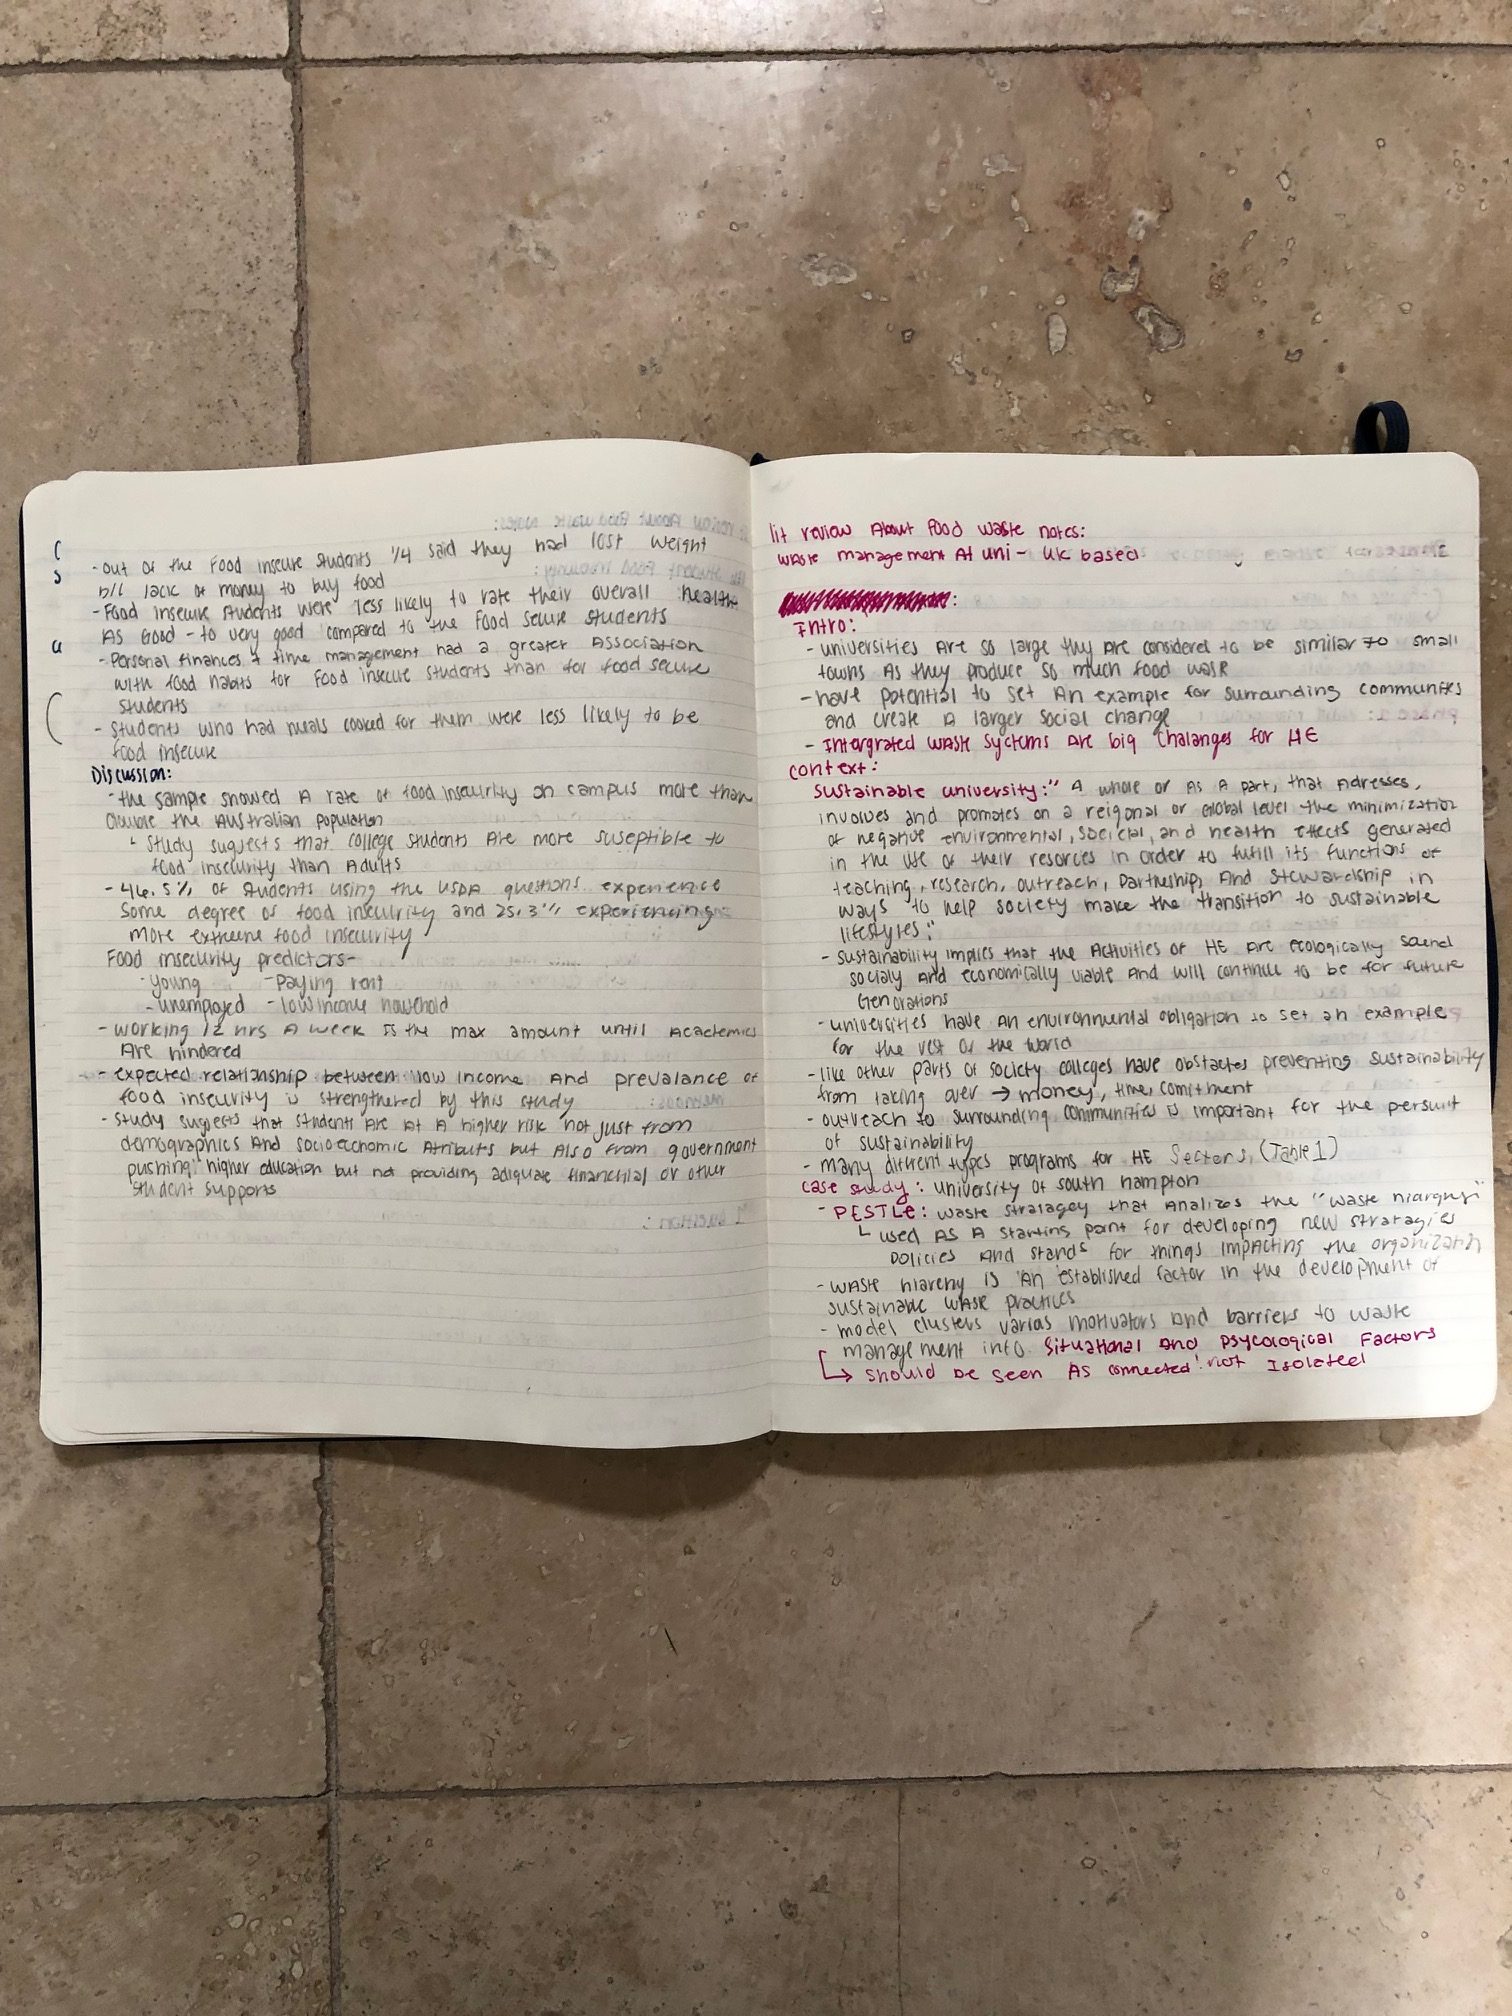 - out of the Food insecure students 1/4 said they had lost weight
b/c lack of money to buy food
- Food insecure students were less likely to rate their overall health
As Good - to very good compared to the food secure students
- Personal finances + time management had a greater Association
with food habits for Food insecure students than for food secure
students
- Students who had meals cooked for them were less likely to be
food insecure
Discussion:
- the sample showed A rate of food insecurity on campus more than
double the Australian population
└ Study sugests that college students Are more suseptible to
food insecurity than Adults
- 46.5% of students using the USDA questions experience
some degree of food insecurity and 25.3% experiencing
more extreme food insecurity
Food insecurity predictors-
- young - Paying rent
- unemployed - low income household
- working 12 hrs A week is the max amount until Academics
Are hindered
- expected relationship between low income And prevalance of
food insecurity is strengthened by this study
- Study suggests that students Are At A higher risk not just from
demographics And socioeconomic Atributs but Also from government
pushing higher education but not providing adiquate financhial or other
student supports
lit review About food waste notes:
waste management At uni - UK based
Intro:
- universities Are so large they Are considered to be similar to small
towns As they produce so much food waste
- have potential to set An example for surrounding communities
and create A larger social change
- Intergrated waste systems Are big Chalanges for HE
context:
Sustainable university:" A whole or As A part, that Adresses,
involves and promotes on a reigonal or global level the minimization
of negative environmental, social, and health effects generated
in the use of their resorces in order to fufill its functions of
teaching, research, outreach, Partneship, And Stewardship in
ways to help society make the transition to sustainable
lifestyles."
- sustainability implies that the Activities of HE Are ecologically sound
socialy And economically viable And will continue to be for future
Generations
- universities have An environmental obligation to set an example
for the rest of the world
- like other parts of society colleges have obstacles preventing sustainability
from taking over → money, time, comitment
- outreach to surrounding communities is important for the persuit
of sustainability
- many different types programs for HE Sectors, (Table 1)
case study: university of south hampton
- PESTLE: waste stratagey that Analizes the "waste hiarchy"
└ used As A starting point for developing new stratagies
policies And stands for things impacting the organization
- waste hiarchy is An established factor in the development of
sustainable waste practices
- model clusters varias motivators and barriers to waste
management into situational And psycological Factors
↳ should be seen As connected not Isolated